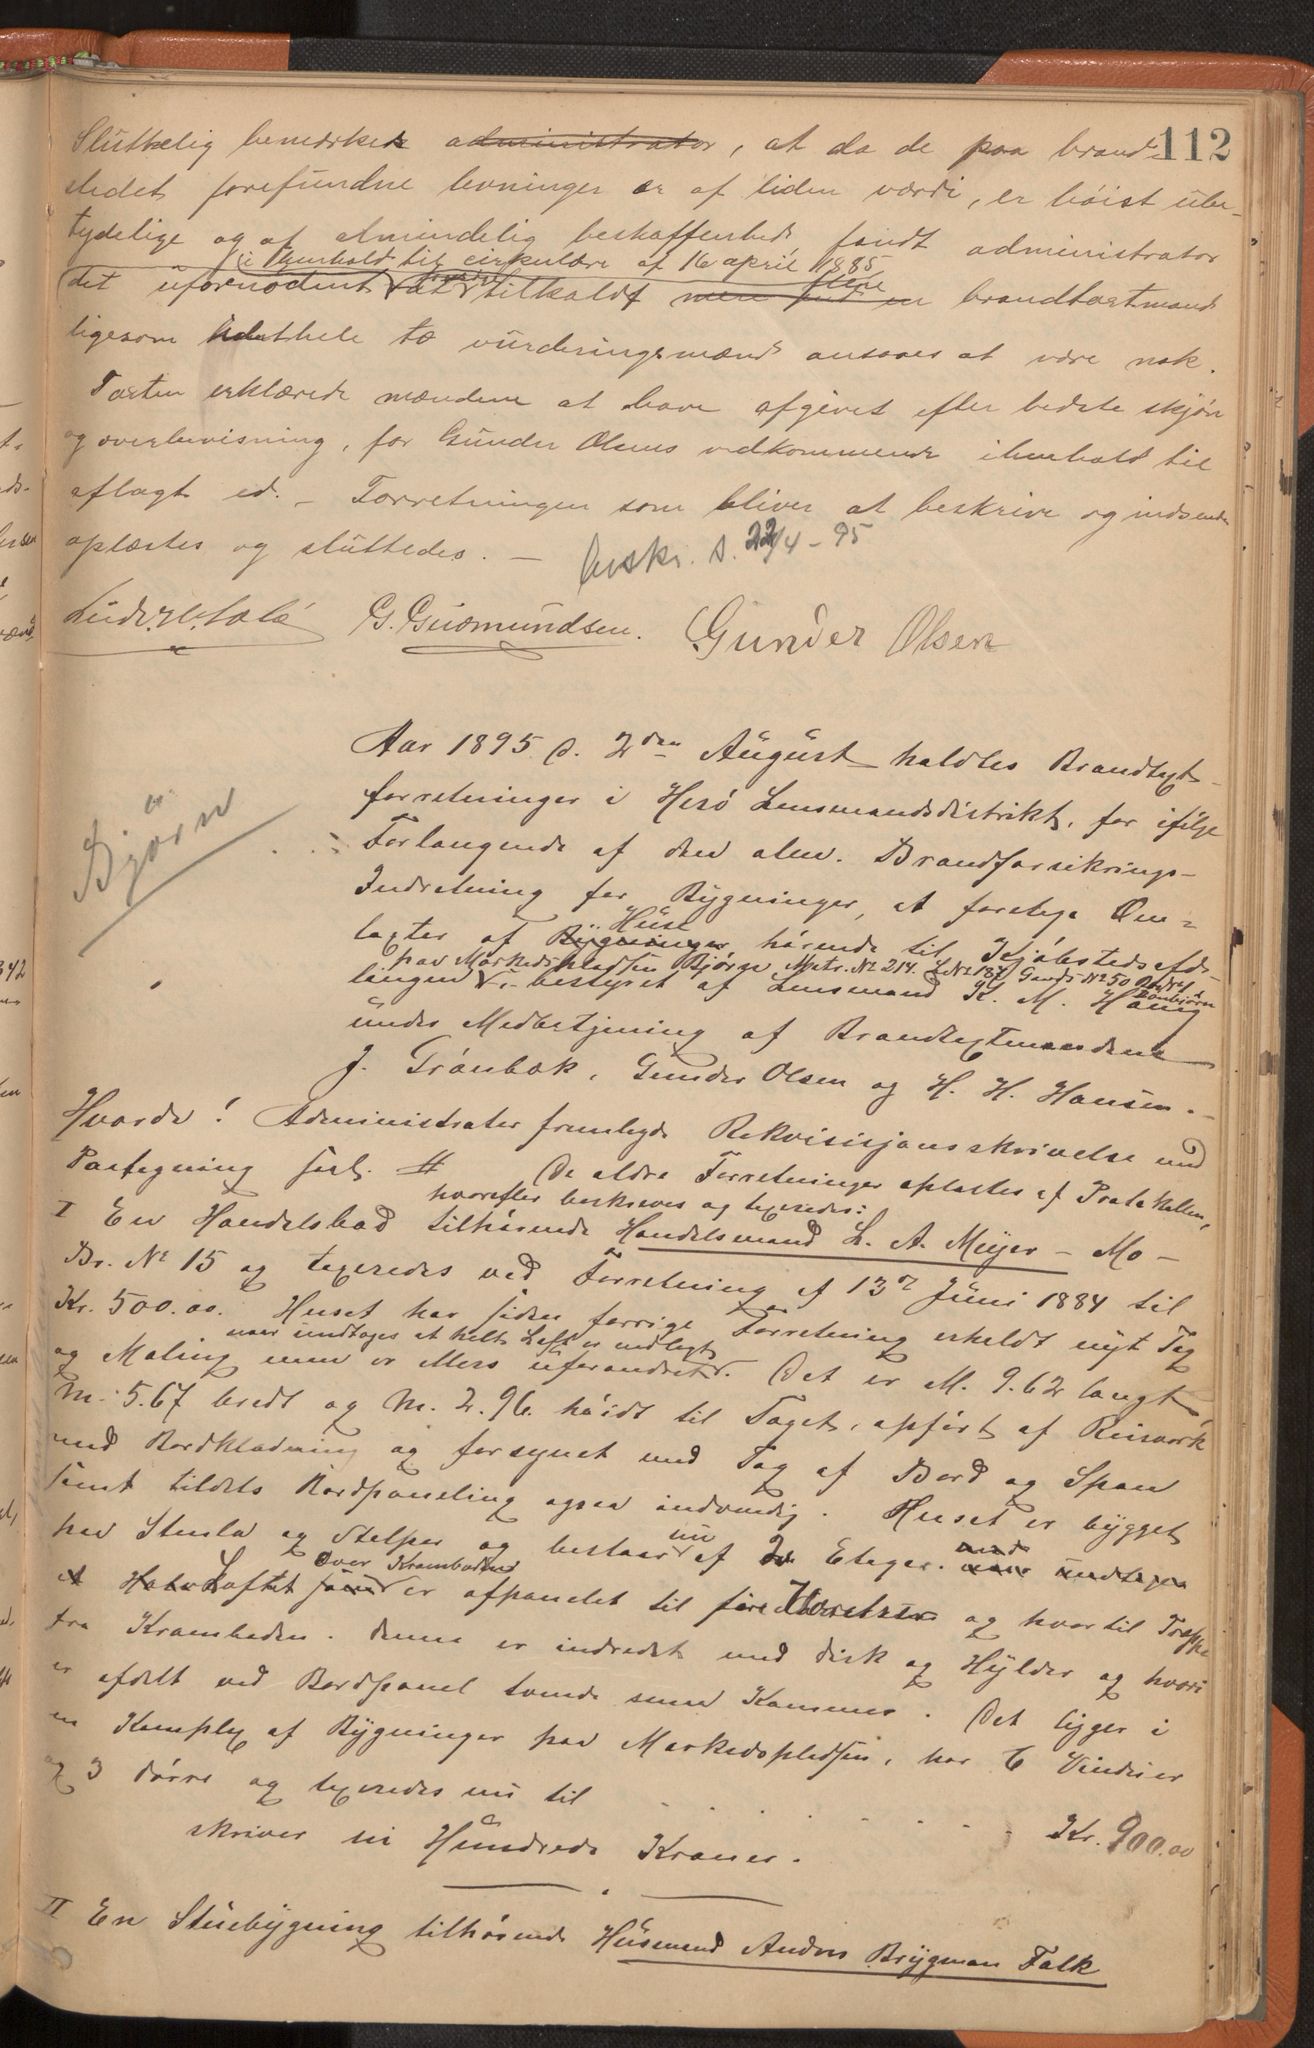 112
Slutkelig bemærkes administrator, at da de paa brand-
stedet forefundne levninger er af liden værdi, er høist ube-
tydelige og af almindelig beskaffenhed, fandt administrator
i henhold til cirkulære af 16 april 1885
det ufornødent at tilkalde mere end en flere brandtaxtmænd
ligesom idethele to vurderingsmænd ansaaes at være nok.
Taxten erklærede mændene at have afgivet efter bedste skjøn
og overbevisning, for Gunder Olsens vedkommende ihenhold til
aflagt ed. – Forretningen som bliver at beskrive og indsende
oplæstes og sluttedes. —
Beskr. d. 22/4 - 95
G. Gudmundsen. Gunder Olsen
Aar 1895 d. 2den August holdtes Brandtaxt-
forretninger i Herø Lensmandsdistrikt, for ifølge
Forlangende af den alm. Brandforsikrings-
Indretning for Bygninger, at foretage Om-
taxter af Bygninger Huse hørende til Kjøbstedsafde-
paa Markedspladsen Bjørn Mtr. No 214. L No 187 Gards No 50
lingen – bestyret af Lensmand K. M. Haug
under Medbetjening af Brandtaxtmændene
J. Grønbæk, Gunder Olsen og H. H. Hansen. –
Bjørn
Hvorda! Administrator fremlagde Rekvisisjonsskrivelse med
Paategning # De ældre Forretninger oplæstes af Protokollen,
hvorefter beskreves og taxeredes:
I En Handelsbod tilhørende Handelsmand L. A. Meyer – Mo –
Br. No 15 og taxeredes ved Forretning af 13de Juni 1884 til
Kr. 500.00. Huset har siden forrige Forretning erholdt nyt Tag
naar undtages at helt Loft er indlagt
og Maling men er ellers uforandret. Det er M. 9.62 langt
M. 5.67 bredt og M. 2.96. høidt til Taget, opført af Reisverk
med Bordklædning og forsynet med Tag af Bord og Spon
samt tildels Bordpaneling ogsaa indvendig. Huset er bygget
paa Stenla og Stolper og bestaar nu af 2 Etager.
Loftet over Kramboden er afpanelet til fire Værelser og hvortil Trappe
fra Kramboden. Denne er indredet med disk og Hylder og hvori
er afdelt ved Bordpanel tvende smaa Kammer. Det ligger i
en Komplex af Bygninger paa Markedspladsen, har 6 Vinduer
og 3 dørre og taxeredes nu til
Kr. 900.00
skriver ni Hundrede Kroner.
II En Stuebygning tilhørende Husmand Anders Brygman Falk